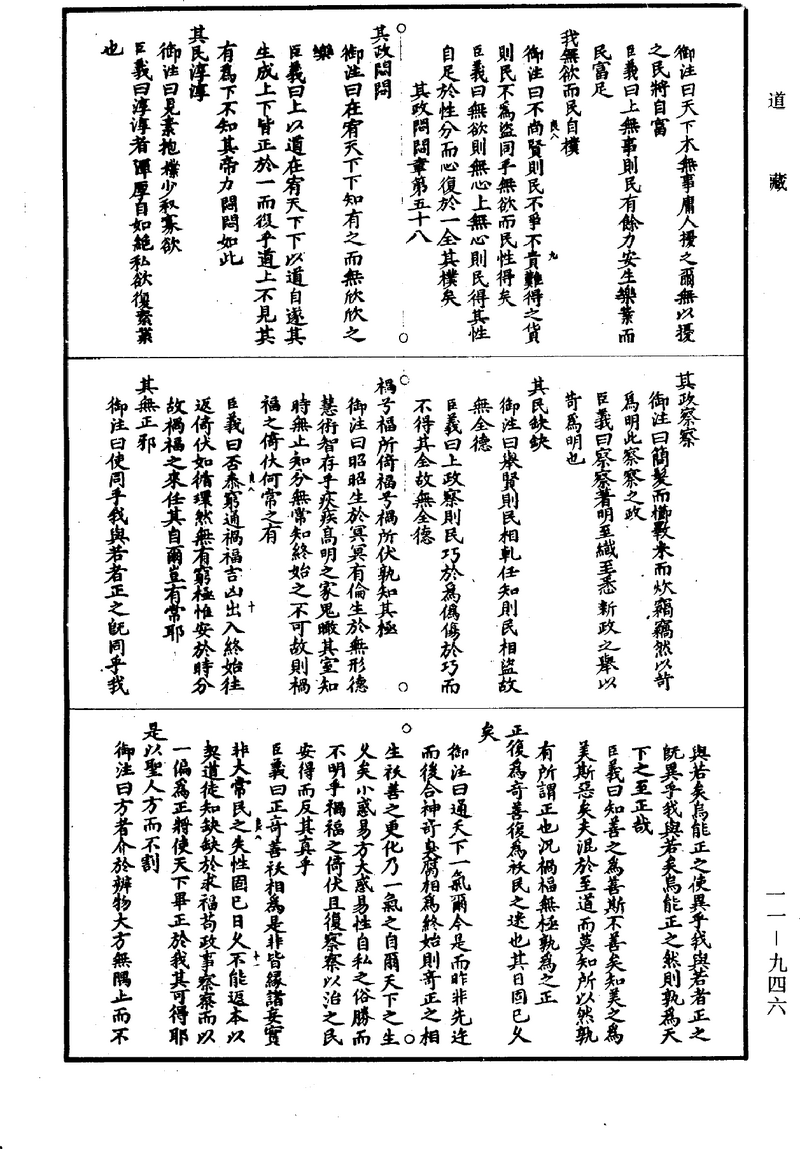 道藏
御注曰天下本無事庸人擾之爾無以擾
之民將自富
臣義曰上無事則民有餘力安生樂業而
民富足
我無欲而民自樸
御注曰不尚賢則民不爭不貴難得之貨
則民不為盜同乎無欲而民性得矣
臣義曰無欲則無心上無心則民得其性
自足於性分而心復於一全其樸矣
其政悶悶章第五十八
其政悶悶
御注曰在宥天下下知有之而無欣欣之
樂
臣義曰上以道在宥天下下以道自遂其
生成上下皆正於一而復乎道上不見其
有為下不知其帝力悶悶如此
其民淳淳
御注曰見素抱樸少私寡欲
臣義曰淳淳者渾厚自如絕私欲復素業
也
其政察察
御注曰簡髮而櫛數米而炊竊竊然以苛
為明此察察之政
臣義曰察察著明至纖至悉新政之舉以
苛為明也
其民缺缺
御注曰舉賢則民相軋任知則民相盜故
無全德
臣義曰上政察則民巧於為偽傷於巧而
不得其全故無全德
禍兮福所倚福兮禍所伏孰知其極
御注曰昭昭生於冥冥有倫生於無形德
慧術智存乎疢疾高明之家鬼瞰其室知
時無止知分無常知終始之不可故則禍
福之倚伏何常之有
臣義曰否泰窮通禍福吉凶出入終始往
返倚伏如循環然無有窮極惟安於時分
故禍福之來任其自爾豈有常耶
其無正邪
御注曰使同乎我與若者正之既同乎我
與若矣烏能正之使異乎我與若者正之
既異乎我與若矣烏能正之然則孰為天
下之至正哉
臣義曰知善之為善斯不善矣知美之為
美斯惡矣夫混於至道而莫知所以然孰
有所謂正也沉禍福無極孰為之正
正復為奇善復為祅民之迷也其日固已久
矣
御注曰通天下一氣爾今是而昨非先迕
而後合神奇臭腐相為終始則奇正之相
生祅善之更化乃一氣之自爾天下之生
久矣小惑易方大惑易性自私之俗勝而
不明乎禍福之倚伏且復察察以治之民
安得而反其真乎
臣義曰正奇善祅相為是非皆緣諸妄實
非大常民之失性固已日久不能返本以
契道徒知缺缺於求福苟政事察察而以
一偏為正將使天下畢正於我其可得耶
是以聖人方而不割
御注曰方者介於辨物大方無隅止而不
一一－九四六